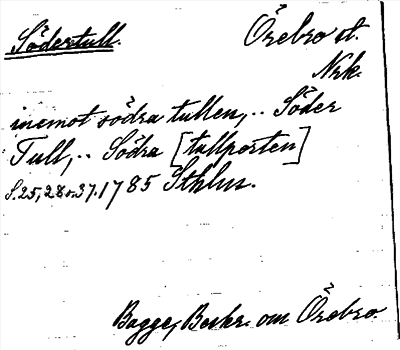 Södertull. Örebro st.
Nrk.
inemot södra tullen, .. Söder
Tull, .. Södra [tullporten]
S. 25, 28 o. 37. 1785 Sthlm.
Bagge, Beskr. om Örebro.